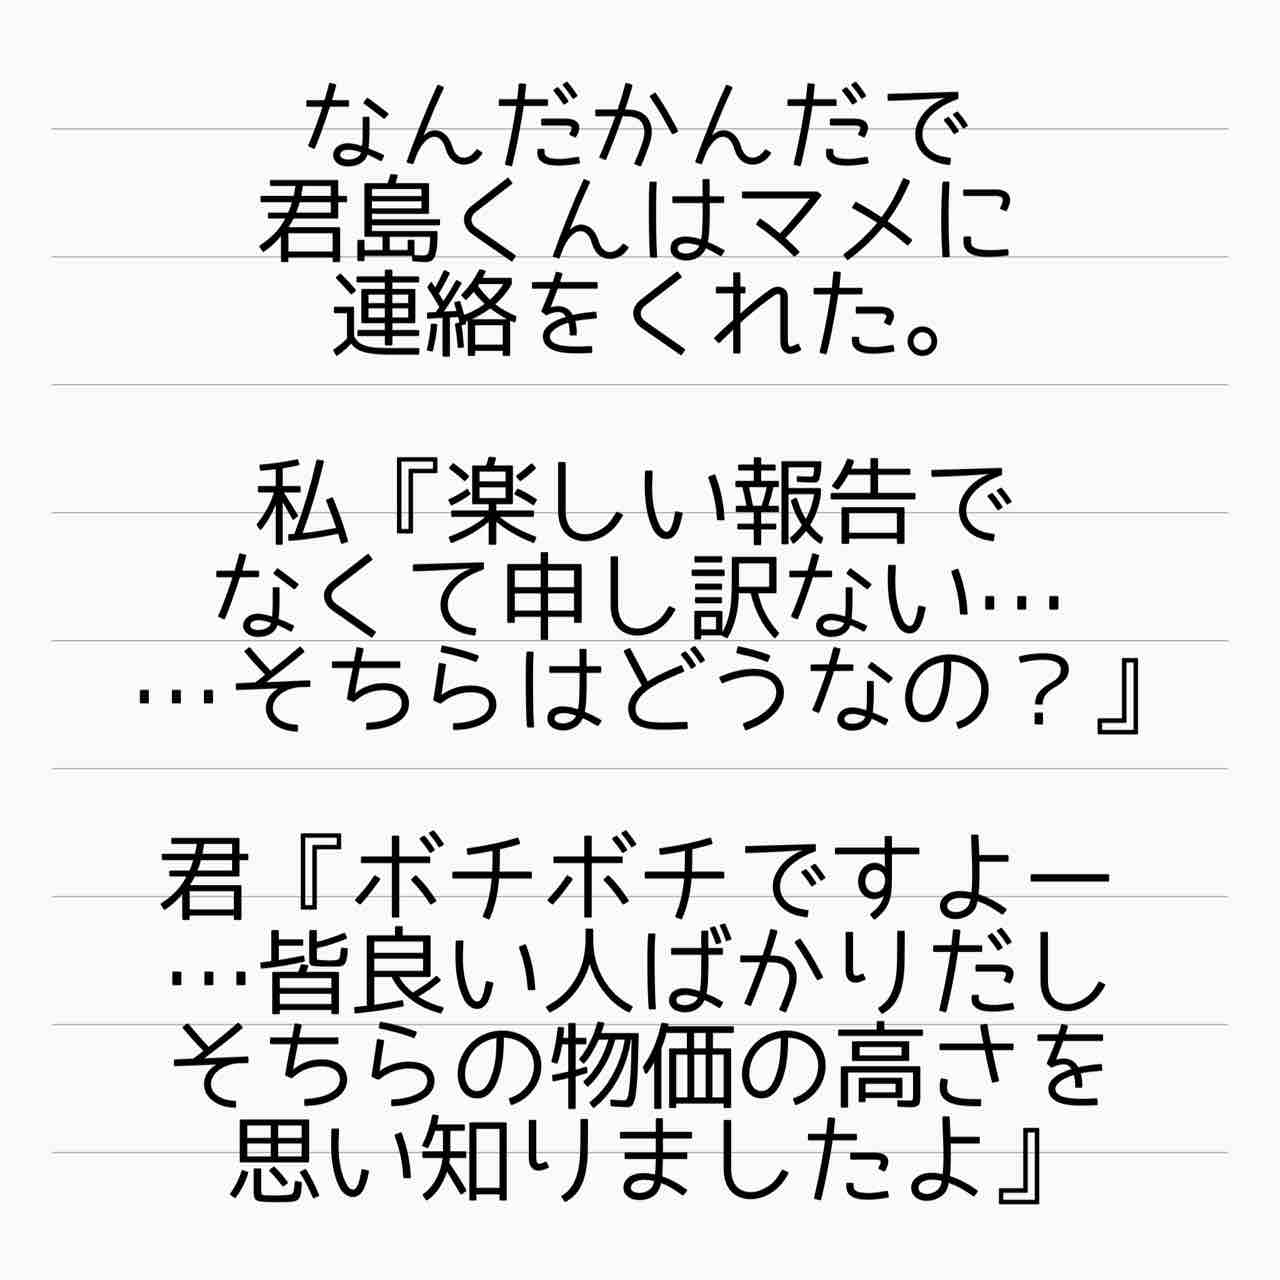 なんだかんだで
君島くんはマメに
連絡をくれた。
私『楽しい報告で
なくて申し訳ない…
…そちらはどうなの？』
君『ボチボチですよー
…皆良い人ばかりだし
そちらの物価の高さを
思い知りましたよ』